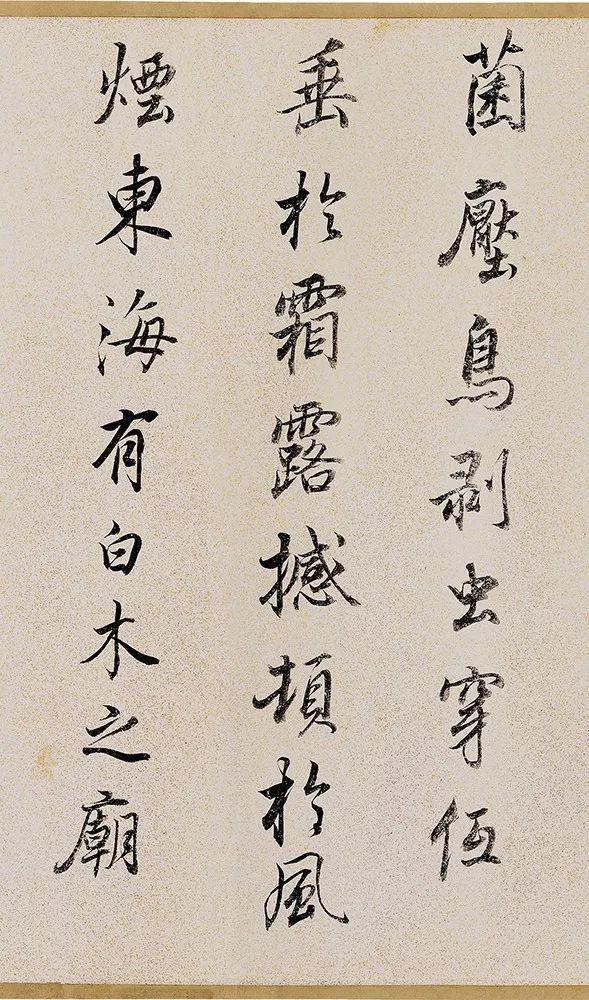 菌壓鳥剥虫穿伍
垂於霜露撼頓於風
煙東海有白木之廟